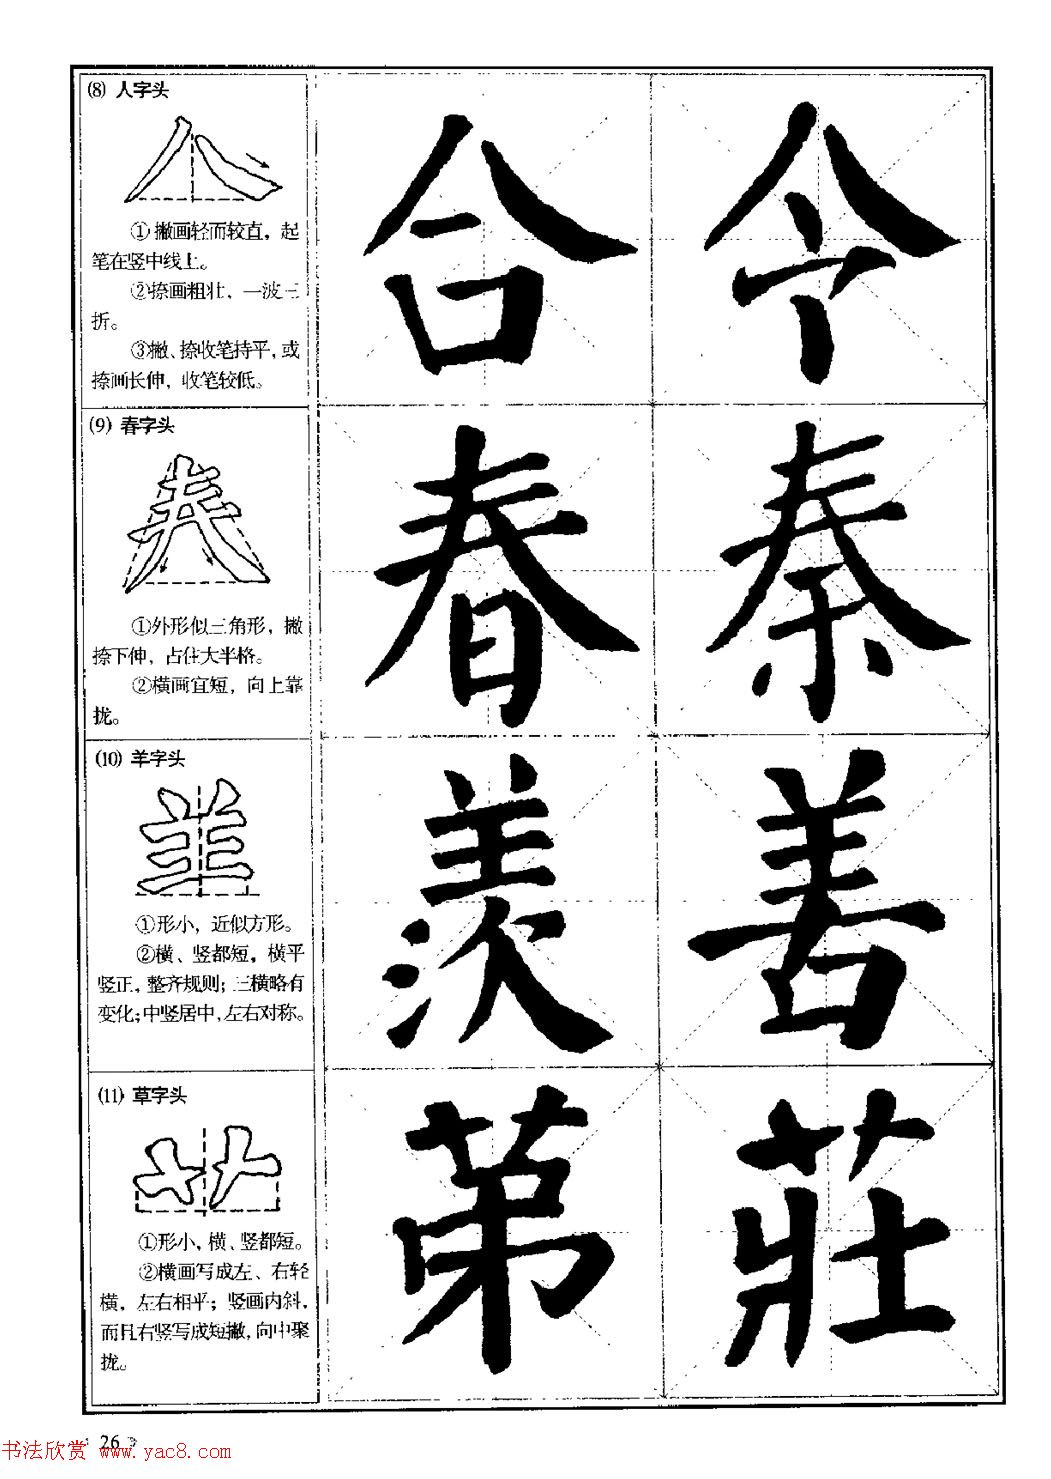 ⑻ 人字头
①撇画轻而较直，起
笔在竖中线上。
②捺画粗壮，一波三
折。
③撇、捺收笔持平，或
捺画长伸，收笔较低。
合 令
⑼ 春字头
①外形似三角形，撇
捺下伸，占住大半格。
②横画宜短，向上靠
拢。
春 秦
⑽ 羊字头
①形小，近似方形。
②横、竖都短，横平
竖正，整齐规则；三横略有
变化；中竖居中，左右对称。
羡 善
⑾ 草字头
①形小，横、竖都短。
②横画写成左、右轻
横，左右相平；竖画内斜，
而且右竖写成短撇，向中聚
拢。
苐 莊
26
书法欣赏 www.yac8.com